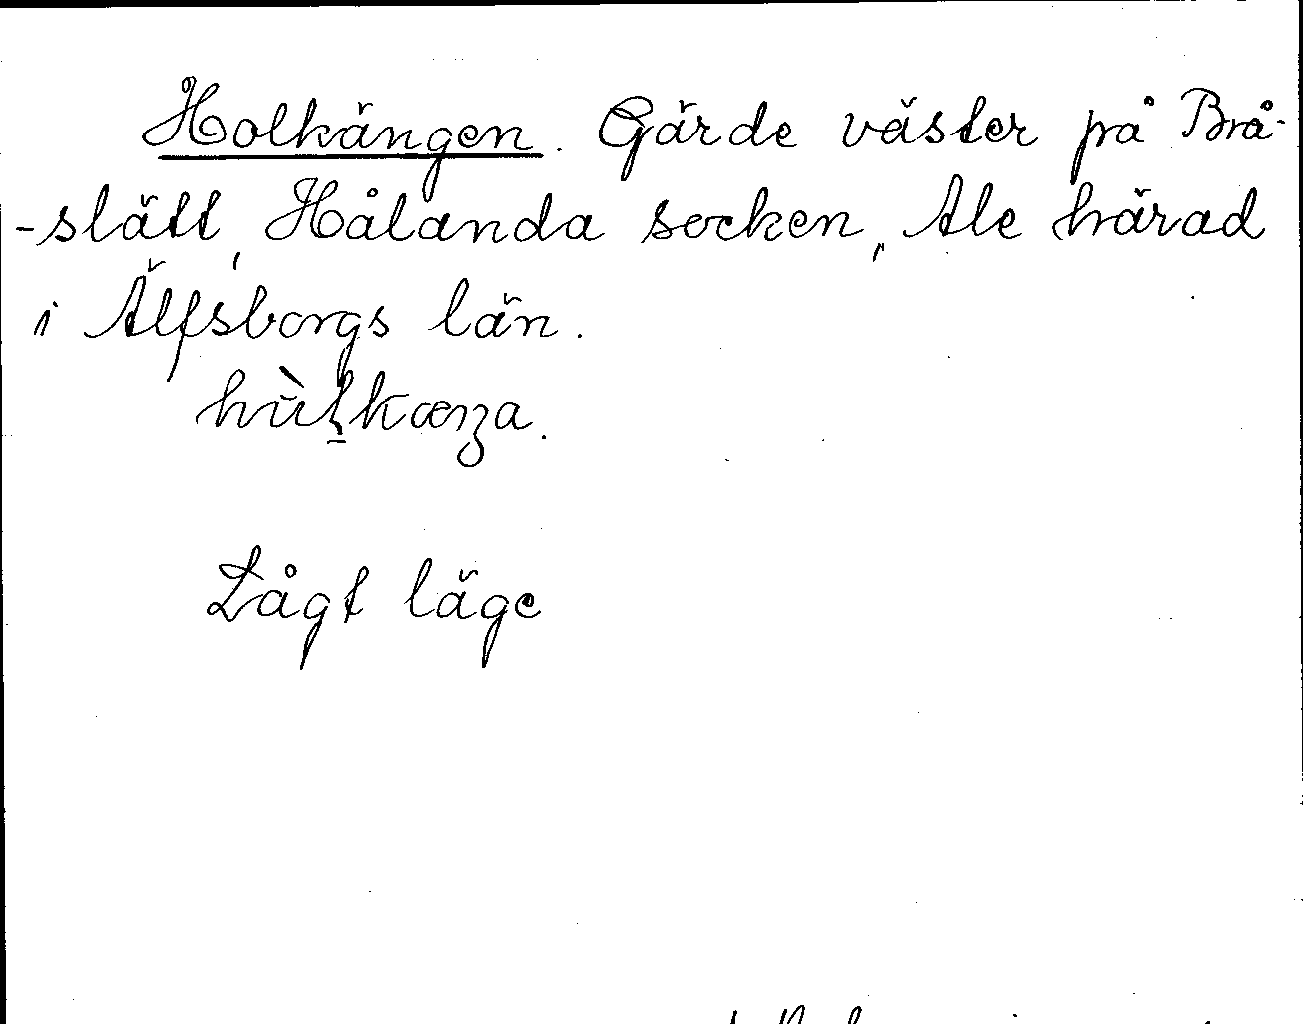 Holkängen. Gärde väster på Brå-
-slätt, Hålanda socken, Ale härad
i Älfsborgs län.
hùlkæŋa.
Lågt läge